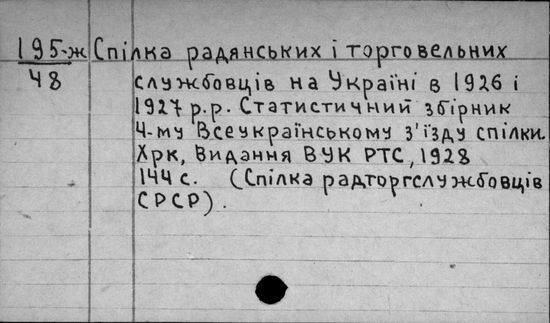 195-ж Спілка радянських і торговельних
48 службовців на Україні в 1926 і
1927 р.р. Статистичний збірник
4-му Всеукраїнському з'їзду спілки.
Хрк, Видання ВУК РТС, 1928
144 с. (Спілка радторгслужбовців
СРСР).